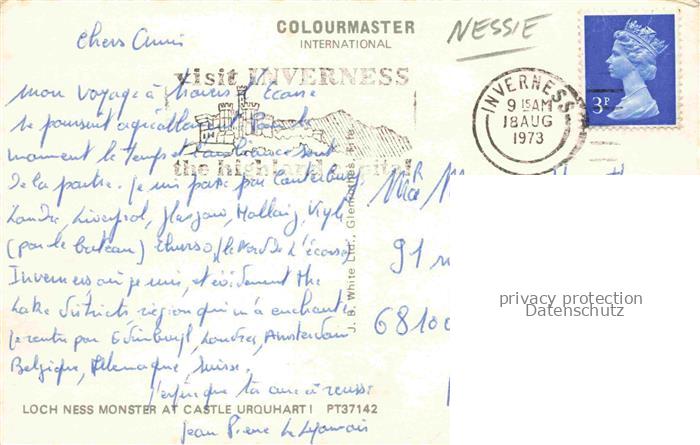 Chers Amis
COLOURMASTER
INTERNATIONAL
NESSIE
visit INVERNESS
the highland capital
INVERNESS
9 15AM
18 AUG
1973
3P
mon voyage à travers l'Ecosse
se poursuit agréablement
moment le temps et l'ambiance sont
de la partie. Je suis passé par Canterbury
Londres, Liverpool, Glasgow, Mallaig, Kyle
(par le bateau) Thurso (le Nord de l'écosse)
Inverness où je suis, et évidement the
Lake districts, région qui m'a enchanté
je rentre par Edimbourg, Londres, Amsterdam
Belgique, Allemagne, Suisse.
J'espère que ta cure a réussi
Jean Pierre
J. B. White Ltd., Glenrothes, Fife.
Mr
91
68100
privacy protection
Datenschutz
LOCH NESS MONSTER AT CASTLE URQUHART! PT37142